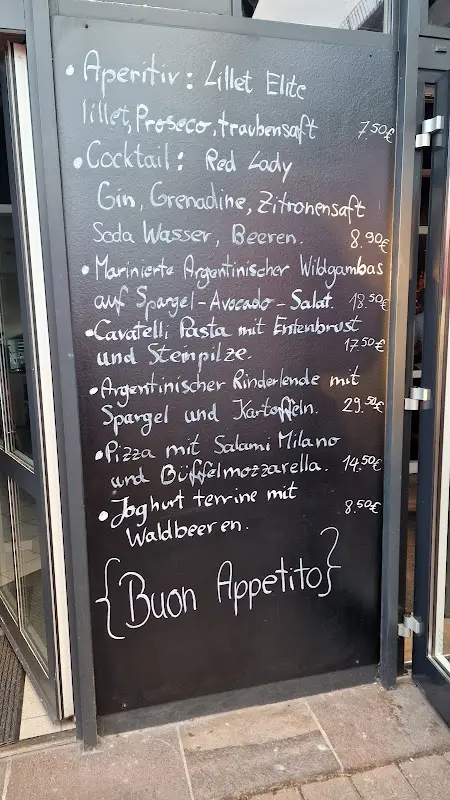 • Aperitiv: Lillet Elite
lillet, Proseco, traubensaft 7.50€
• Cocktail: Red Lady
Gin, Grenadine, Zitronensaft
Soda Wasser, Beeren. 8.90€
• Marinierte Argentinischer Wildgambas
auf Spargel-Avocado-Salat. 18.50€
• Cavatelli Pasta mit Entenbrust
und Steinpilze. 17.50€
• Argentinischer Rinderlende mit
Spargel und Kartoffeln. 29.50€
• Pizza mit Salami Milano
und Büffelmozzarella. 14.50€
• Joghurt terrine mit
Waldbeeren. 8.50€
{Buon Appetito}